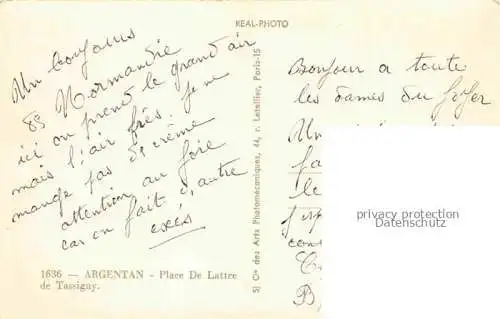 REAL-PHOTO
Un bonjour
de Normandie
ici on prend le grand air
mais l'air frès. Je ne
mange pas de crème
attention au foie
car on fait d'autre
exès
1636 — ARGENTAN - Place De Lattre
de Tassigny.
5) Cie des Arts Photomécaniques, 44, r. Letellier, Paris-15
Bonjour a toute
les dames du foyer
Un
fa
le
J'esp
cons
privacy protection
Datenschutz